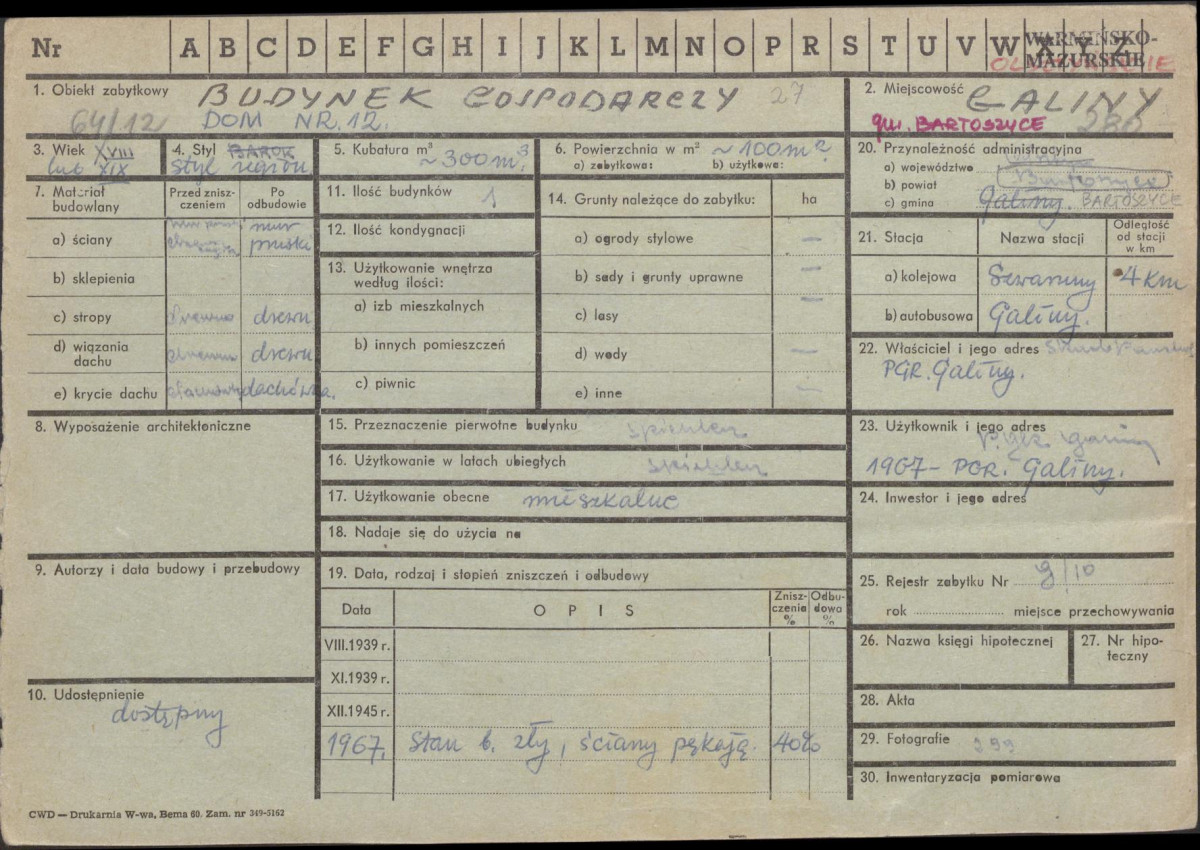 Nr A B C D E F G H I J K L M N O P R S T U V W X Y Z
WARMIŃSKO-
MAZURSKIE
1. Obiekt zabytkowy BUDYNEK GOSPODARCZY 27
64/12 DOM NR. 12.
2. Miejscowość GALINY
gm. BARTOSZYCE
3. Wiek XVIII
lub XIX
4. Styl BAROK
styl region
5. Kubatura m³
~300m³
6. Powierzchnia w m² ~100m²
a) zabytkowa: b) użytkowa:
7. Materiał
budowlany
Przed znisz-
czeniem
Po
odbudowie
a) ściany mur
pruski
b) sklepienia
c) stropy drewno drewn
d) wiązania
dachu drewno drewn
e) krycie dachu dachówka.
8. Wyposażenie architektoniczne
9. Autorzy i data budowy i przebudowy
10. Udostępnienie
dostępny
11. Ilość budynków 1
12. Ilość kondygnacji
13. Użytkowanie wnętrza
według ilości:
a) izb mieszkalnych
b) innych pomieszczeń
c) piwnic
14. Grunty należące do zabytku: ha
a) ogrody stylowe —
b) sady i grunty uprawne —
c) lasy —
d) wody —
e) inne —
15. Przeznaczenie pierwotne budynku spichlerz
16. Użytkowanie w latach ubiegłych spichlerz
17. Użytkowanie obecne mieszkalne
18. Nadaje się do użycia na
19. Data, rodzaj i stopień zniszczeń i odbudowy
Data OPIS Znisz-
czenia
%
Odbu-
dowa
%
VIII.1939 r.
XI.1939 r.
XII.1945 r.
1967. Stan b. zły, ściany pękają. 40%
20. Przynależność administracyjna
a) województwo
b) powiat Bartoszyce
c) gmina Galiny. BARTOSZYCE
21. Stacja Nazwa stacji Odległość
od stacji
w km
a) kolejowa 4 km
b) autobusowa Galiny.
22. Właściciel i jego adres
PGR. Galiny.
23. Użytkownik i jego adres
1967 – PGR. Galiny.
24. Inwestor i jego adres
25. Rejestr zabytku Nr
rok miejsce przechowywania
26. Nazwa księgi hipotecznej
27. Nr hipo-
teczny
28. Akta
29. Fotografie 299
30. Inwentaryzacja pomiarowa
CWD — Drukarnia W-wa, Bema 60. Zam. nr 349-5162